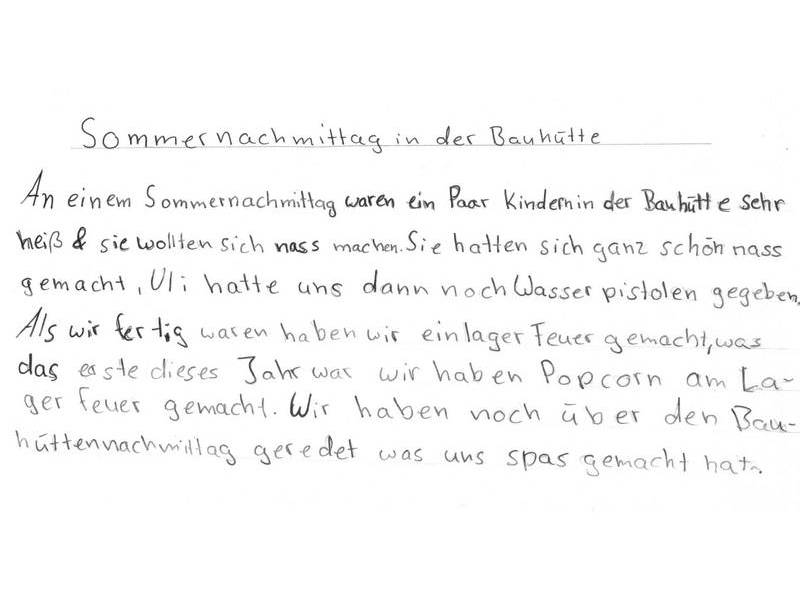 Sommernachmittag in der Bauhütte
An einem Sommernachmittag waren ein Paar Kindern in der Bauhütte sehr
heiß & sie wollten sich nass machen. Sie hatten sich ganz schön nass
gemacht, Uli hatte uns dann noch Wasser pistolen gegeben,
Als wir fertig waren haben wir ein lager Feuer gemacht, was
das erste dieses Jahr war wir haben Popcorn am La-
ger feuer gemacht. Wir haben noch über den Bau-
hüttennachmittag geredet was uns spas gemacht hat.